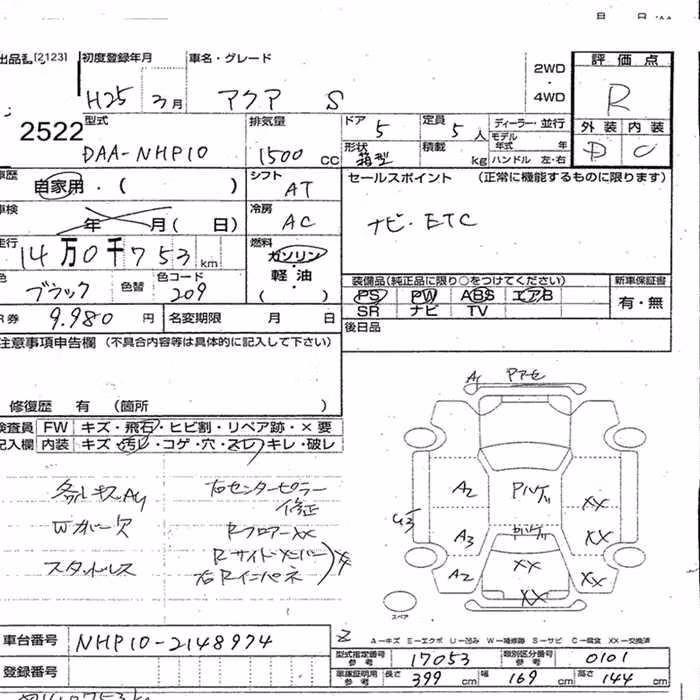 月 日
出品番 [2123] 初度登録年月 車名・グレード 2WD ・ 4WD 評価点
H25 3月 アクア S R
2522 型式 排気量 ドア 5 定員 5人 ディーラー・並行 外装 内装
DAA-NHP10 1500cc 形状 箱型 積載 kg モデル年式 年 ハンドル 左・右 D C
車歴 自家用・( ) シフト AT セールスポイント (正常に機能するものに限ります)
車検 年 月( 日) 冷房 AC ナビ・ETC
走行 14万0千753km 燃料 ガソリン・軽・油 ( )
色 ブラック 色替 色コード 209
装備品(純正品に限り○をつけてください) 新車保証書
PS PW ABS エアB 有・無
SR ナビ TV
R券 9.980円 名変期限 月 日 後日品
注意事項申告欄 (不具合内容等は具体的に記入して下さい)
修復歴 有 (箇所 )
検査員 FW キズ・飛石・ヒビ割・リペア跡・×要
記入欄 内装 キズ・汚レ・コゲ・穴・スレ・キレ・破レ
各ルキズA4 右センターピラー
修正
Wカバー欠 Rフロアーxx
スタッドレス Rサイドメンバー
右Rインパネ xx
A2 A3 A2
XX XX XX
XX
XX
スペア
車台番号 NHP10-2148974
A-キズ E-エクボ U-凹み W-補修跡 S-サビ C-腐食 XX-交換済
型式指定番号 参考 17053 類別区分番号 参考 0101
登録番号 車庫証明用 参考 長さ 399cm 幅 169cm 高さ 144cm